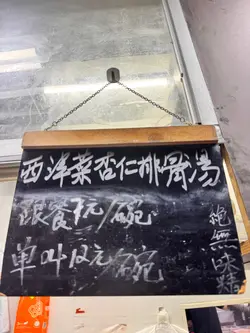 西洋菜杏仁排骨湯
跟餐元/碗
单叫12元/碗
絕無味精